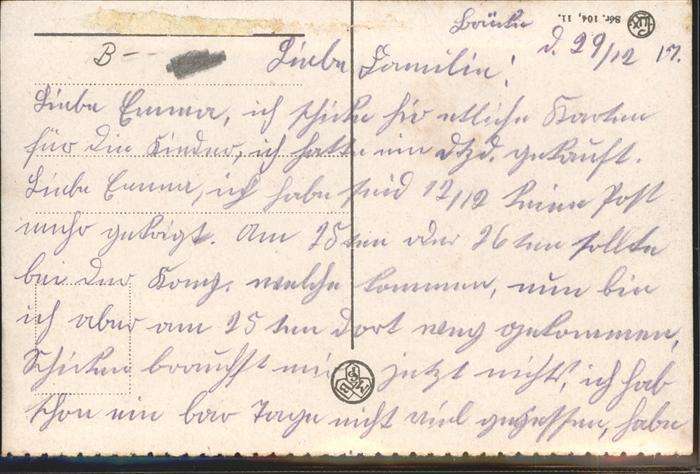 Sér. 104, 11.
Brücke d. 29/12 17.
B–
Liebe Familie!
Liebe Emma, ich schicke hir etliche Karten
für die Kinder, ich hatte ein Dtzd. gekauft.
Liebe Emma, ich habe seid 12/12 keine Post
mehr gekrigt. Am 25ten oder 26ten sollte
bei der Komp. welche kommen, nun bin
ich aber am 25ten dort weg gekommen,
Schicken brauchst mir jetzt nichts, ich hab
schon ein bar Tage nicht viel gegessen, habe